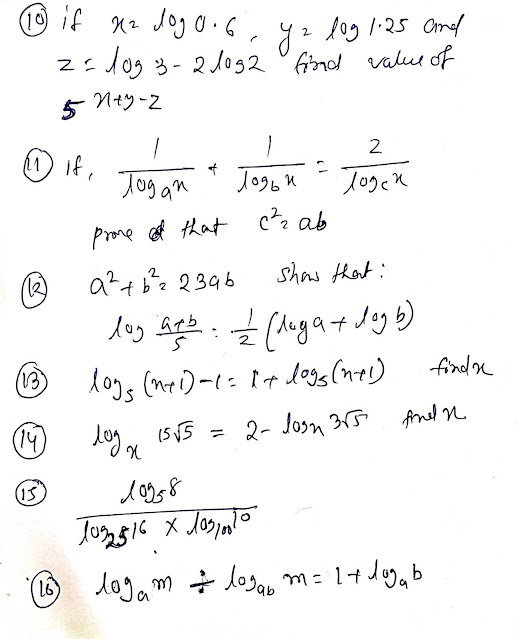 (10) if x = log 0.6, y = log 1.25 and
z = log 3 - 2 log 2 find value of
5^(x+y-z)
(11) if, 1/(log_a x) + 1/(log_b x) = 2/(log_c x)
prove that c² = ab
(12) a² + b² = 23ab show that :
log (a+b)/5 = 1/2 (log a + log b)
(13) log_5 (x+1) - 1 = 1 + log_5 (x+1) find x
(14) log_x 15√5 = 2 - log_x 3√5 find x
(15) log_5 8
log_25 16 × log_100 10
(16) log_a m ÷ log_ab m = 1 + log_a b